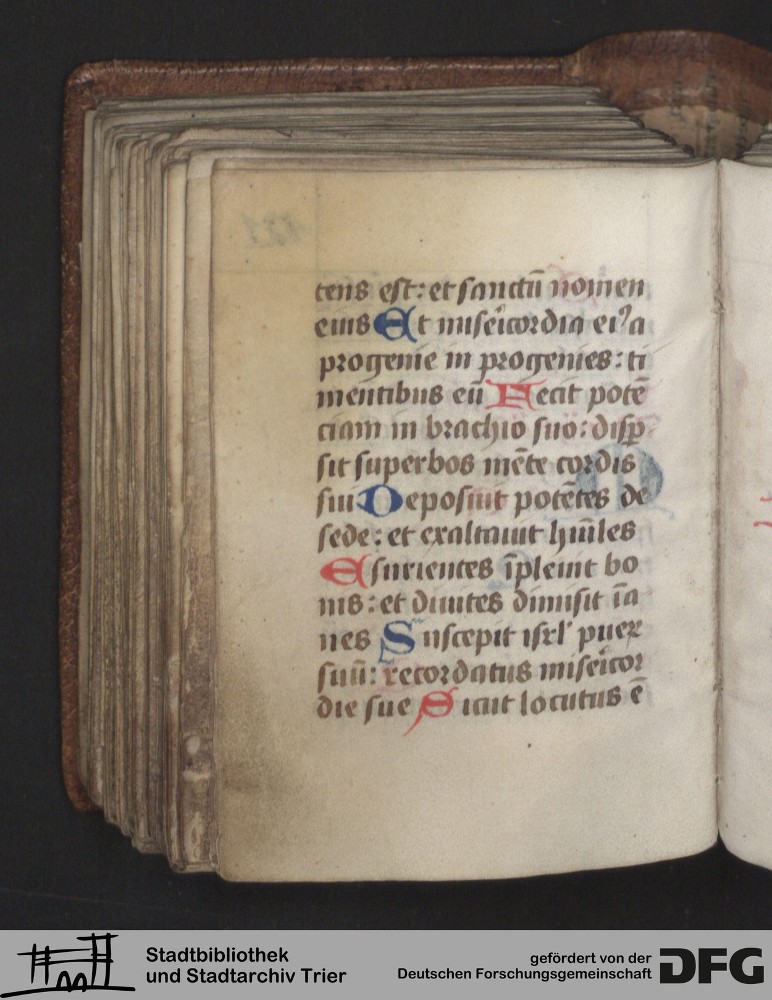 tens est: et sanctū nomen
eius Et miẽicordia ei⁹a
progenie in progenies: ti
mentibus eū Fecit potē
ciam in brachio suo: disꝑ
sit superbos mēte cordis
sui Deposuit potētes de
sede: et exaltauit hūiles
Esurientes īpleuit bo
nis: et diuites dimisit īa
nes Suscepit isrl' puer
suū: recordatus miẽicor
die sue Sicut locutus ē
Stadtbibliothek
und Stadtarchiv Trier
gefördert von der
Deutschen Forschungsgemeinschaft
DFG